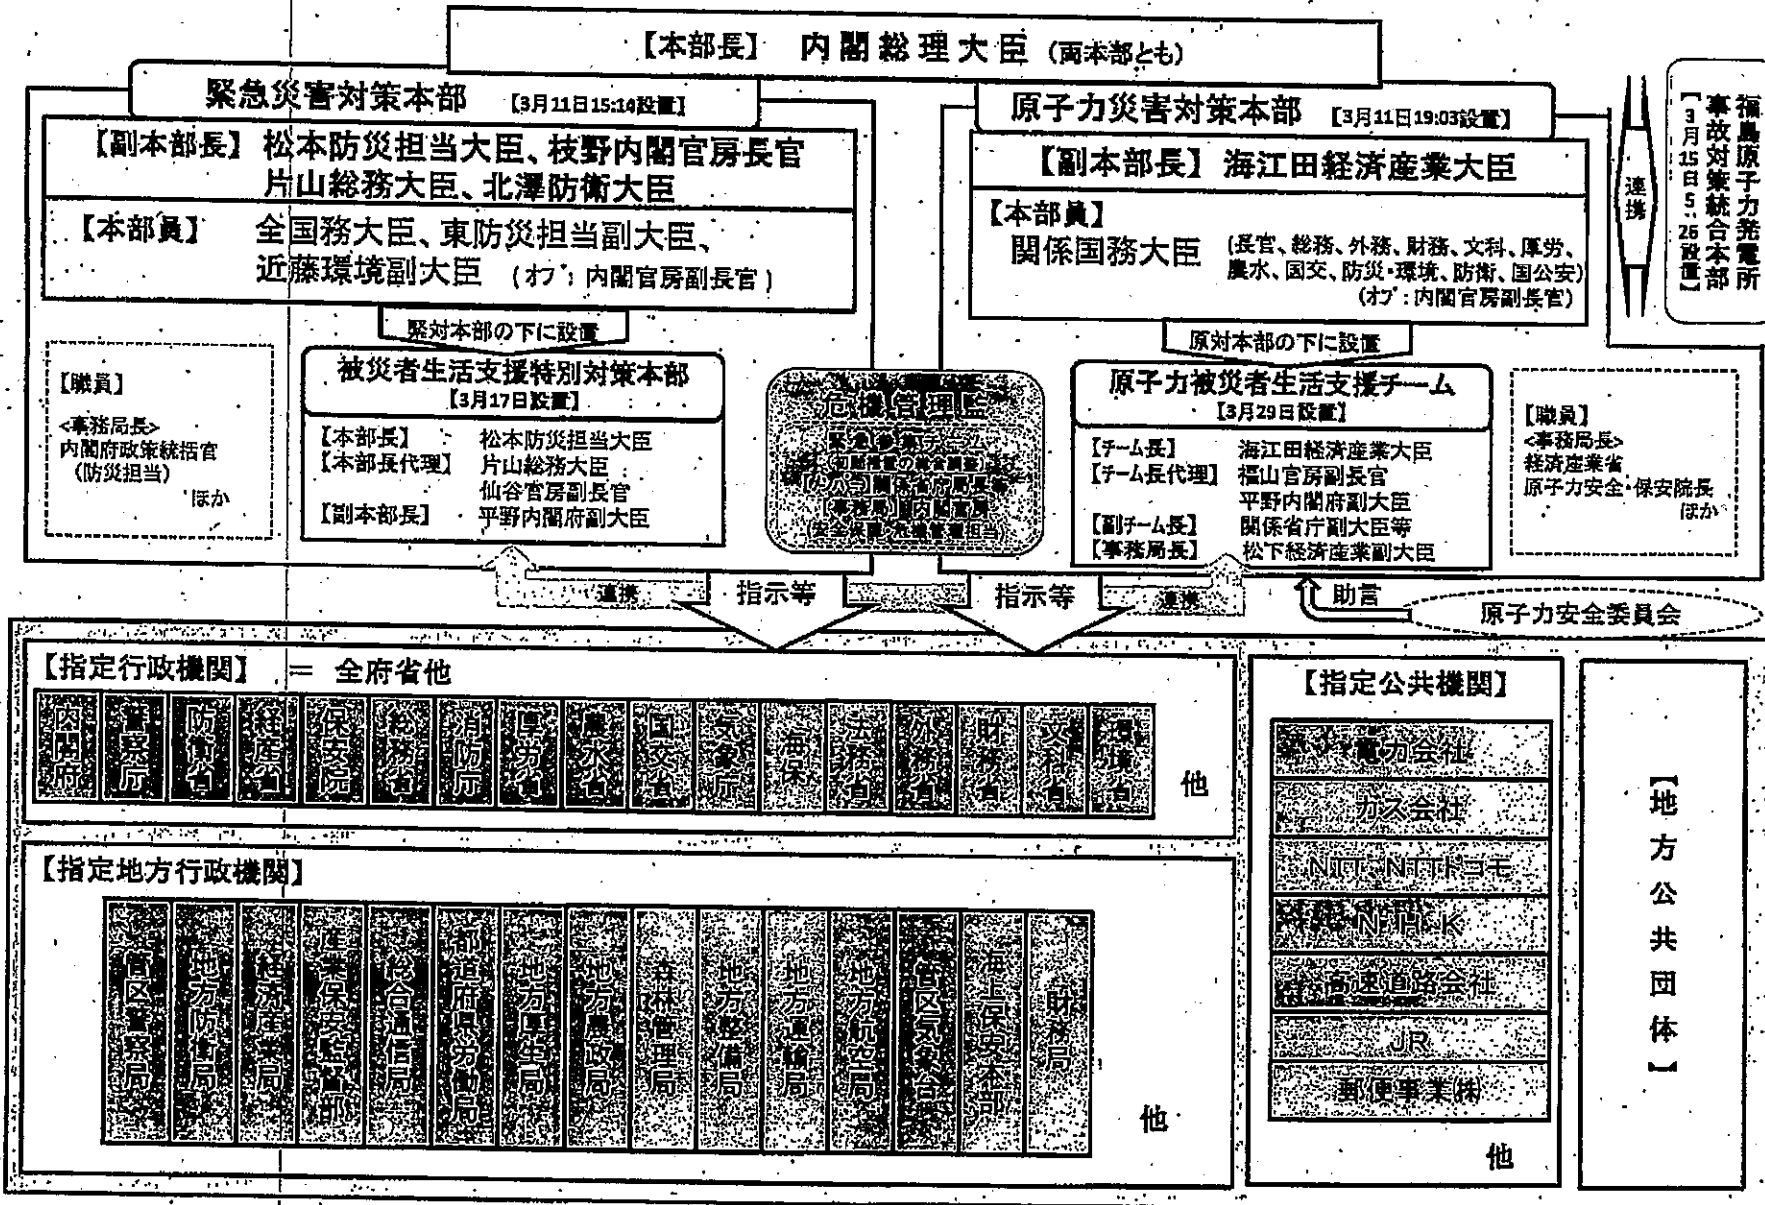 【本部長】 内閣総理大臣 (両本部とも)
緊急災害対策本部 【3月11日15:14設置】
【副本部長】 松本防災担当大臣、枝野内閣官房長官
片山総務大臣、北澤防衛大臣
【本部員】 全国務大臣、東防災担当副大臣、
近藤環境副大臣 (オブ:内閣官房副長官)
緊対本部の下に設置
【職員】
<事務局長>
内閣府政策統括官
(防災担当)
ほか
被災者生活支援特別対策本部
【3月17日設置】
【本部長】 松本防災担当大臣
【本部長代理】 片山総務大臣
仙谷官房副長官
【副本部長】 平野内閣府副大臣
危機管理監
緊急参集チーム
(初期措置の総合調整)
関係省庁局長等
【事務局】内閣官房
(安全保障・危機管理担当)
原子力災害対策本部 【3月11日19:03設置】
【副本部長】 海江田経済産業大臣
【本部員】
関係国務大臣 (長官、総務、外務、財務、文科、厚労、
農水、国交、防災・環境、防衛、国公安)
(オブ:内閣官房副長官)
原対本部の下に設置
原子力被災者生活支援チーム
【3月29日設置】
【チーム長】 海江田経済産業大臣
【チーム長代理】 福山官房副長官
平野内閣府副大臣
【副チーム長】 関係省庁副大臣等
【事務局長】 松下経済産業副大臣
【職員】
<事務局長>
経済産業省
原子力安全・保安院長
ほか
連携
福島原子力発電所
事故対策統合本部
【3月15日5:26設置】
連携
指示等
指示等
連携
助言
原子力安全委員会
【指定行政機関】 = 全府省他
内閣府
警察庁
防衛省
経産省
保安院
総務省
消防庁
厚労省
農水省
国交省
気象庁
海保
法務省
外務省
財務省
文科省
環境省
他
【指定地方行政機関】
管区警察局
地方防衛局
経済産業局
産業保安監督部
総合通信局
都道府県労働局
地方厚生局
地方農政局
森林管理局
地方整備局
地方運輸局
地方航空局
管区気象台
海上保安本部
財務局
他
【指定公共機関】
電力会社
ガス会社
NTT・NTTドコモ
NHK
高速道路会社
JR
郵便事業㈱
他
【地方公共団体】